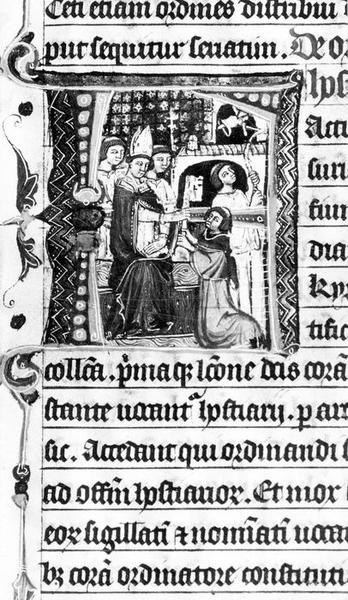 Ceti etiam ordines distribui
put sequitur seriatim. De or
hps
Acti
suri
fiun
dia
Ky
tific
collcta. prima q lcone das corā
stante uocant hpstiarij. p ar
sic. Accedant qui ordinandi s
ad offm hpstiarior. Et mox
eor sigillati ⁊ nominati uoca
bz corā ordinatore constituti